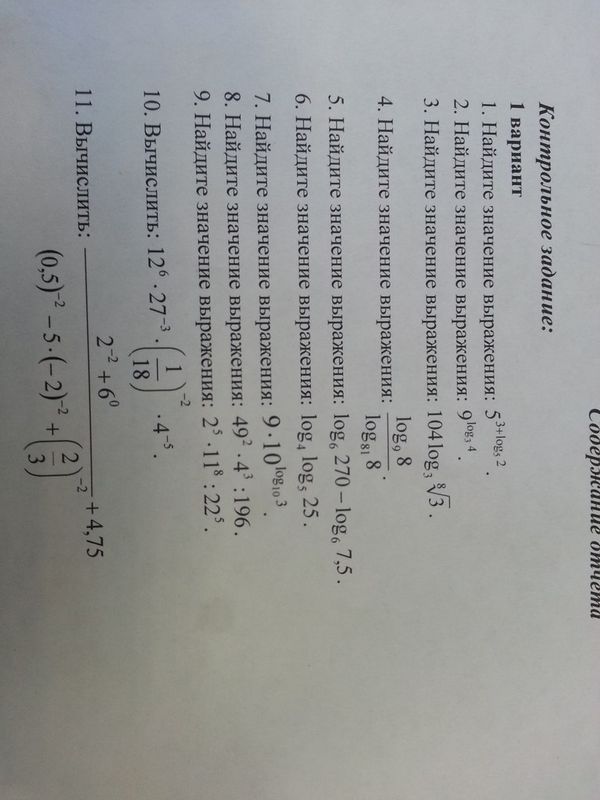 Содержание отчета
Контрольное задание:
1 вариант
1. Найдите значение выражения: 5^{3+log_5 2}.
2. Найдите значение выражения: 9^{log_3 4}.
3. Найдите значение выражения: 104log_3 \sqrt[8]{3}.
4. Найдите значение выражения: \frac{log_9 8}{log_{81} 8}.
5. Найдите значение выражения: log_6 270 − log_6 7,5.
6. Найдите значение выражения: log_4 log_5 25.
7. Найдите значение выражения: 9·10^{log_{10} 3}.
8. Найдите значение выражения: 49^2·4^3:196.
9. Найдите значение выражения: 2^5·11^8:22^5.
10. Вычислить: 12^6·27^{−3}·(\frac{1}{18})^{−2}·4^{−5}.
11. Вычислить: \frac{2^{−2}+6^0}{(0,5)^{−2}−5·(−2)^{−2}+(\frac{2}{3})^{−2}}+4,75